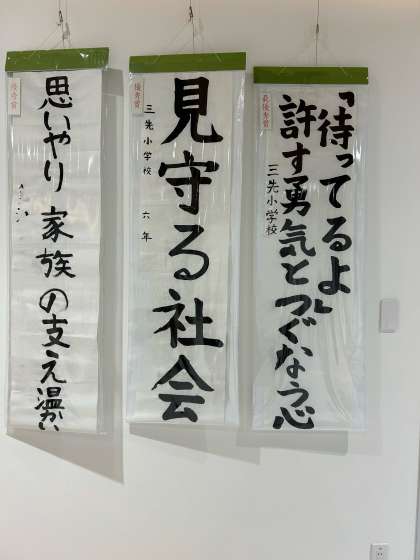 最優秀賞
「待ってるよ」
許す勇気とつぐなう心
三先小学校
優秀賞
見守る社会
三先小学校 六年
優秀賞
思いやり 家族の支え温かい